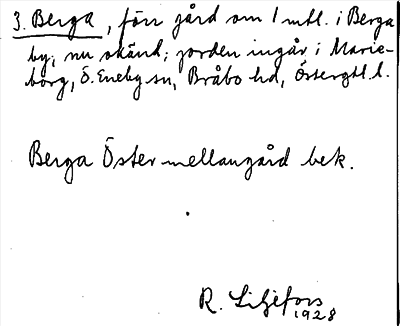 3. Berga, förr gård om 1 mtl. i Berga
by; nu okänd; jorden ingår i Marie-
borg, Ö. Eneby sn, Bråbo hd, Östergtl. l.
Berga Öster mellangård bek.
R. Liljefors
1928